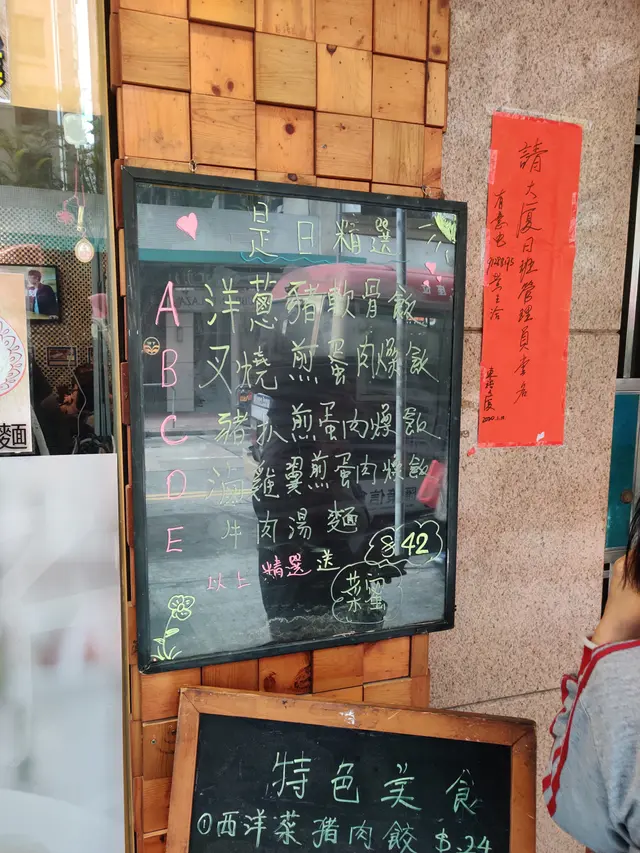 是日精選
A 洋蔥豬軟骨飯
B 叉燒煎蛋肉燥飯
C 豬扒煎蛋肉燥飯
D 滷雞翼煎蛋肉燥飯
E 牛肉湯麵
$42
以上精選送
茶蜜
特色美食
①西洋菜豬肉餃 $.24
請大廈日班管理員壹名
有意電
麵